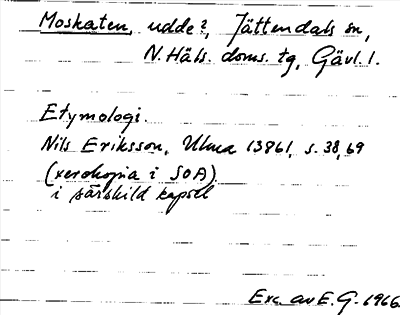 Moskaten, udde?, Jättendals sn,
N. Häls. doms. tg, Gävl. l.
Etymologi.
Nils Eriksson, Ulma 13861, s. 38, 69
(xerokopia i SOA)
i särskild kapsel
Exc. av E. G. 1966.